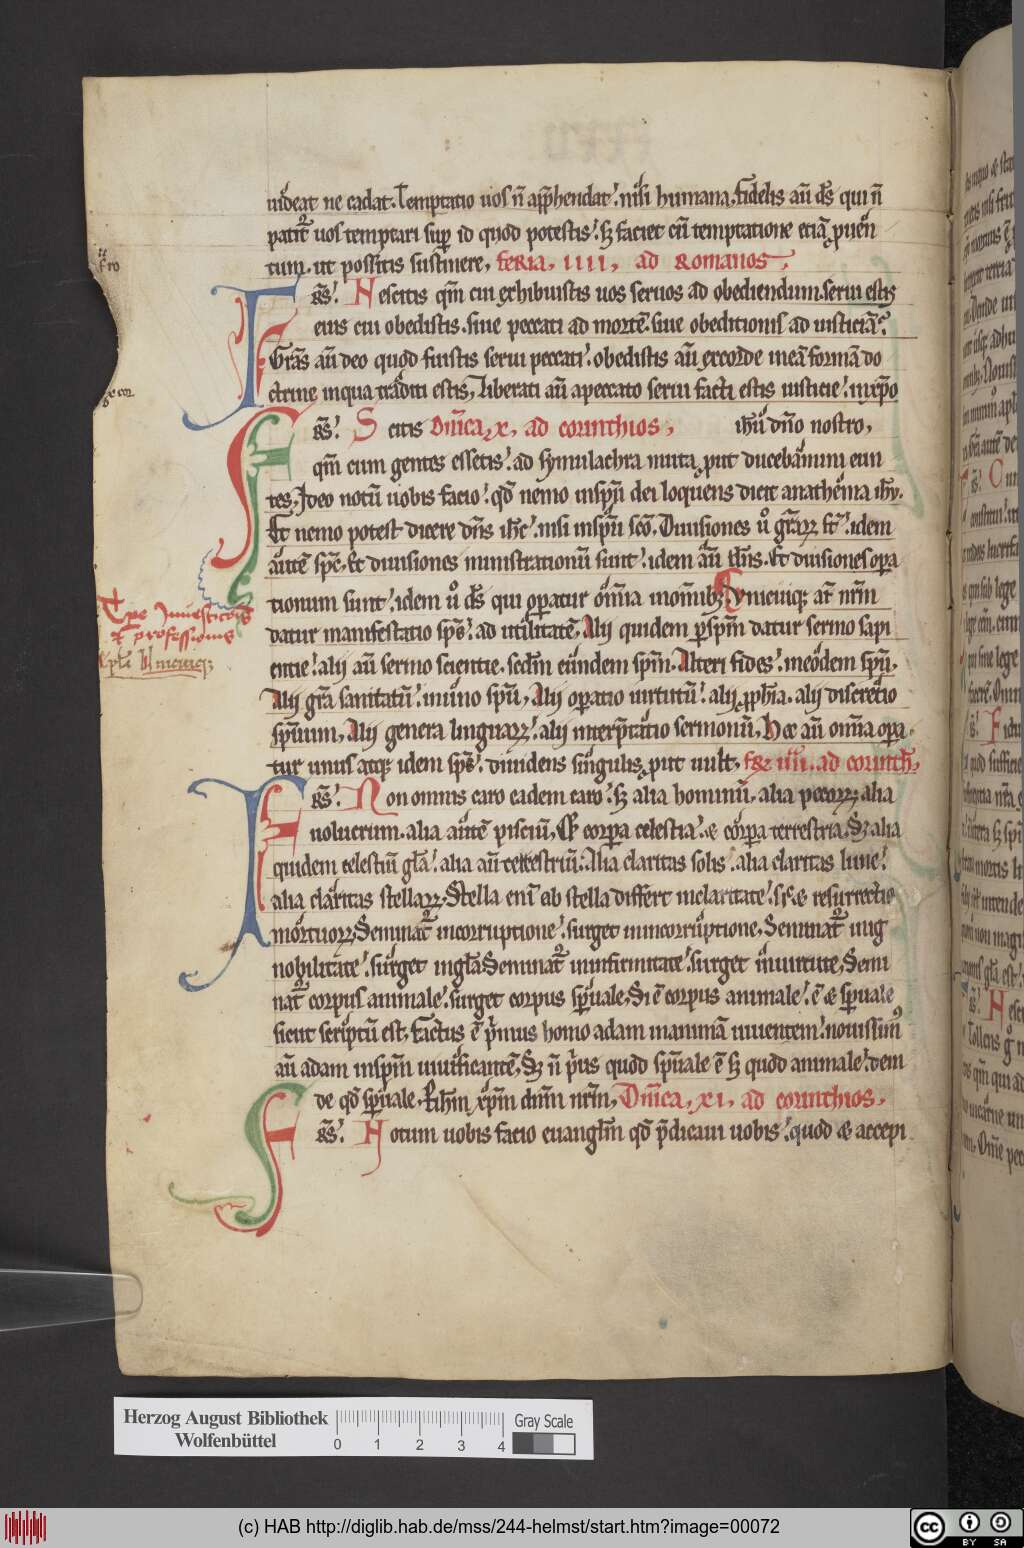 uideat ne cadat. Temptatio uos n̄ app̄hendat. nisi humana. fidelis aū d̄s qui n̄
patit᷑ uos temptari sup̄ id quod potestis. sꝫ faciet cū temptatione etiā ꝓuen
tum. ut possitis sustinere. feria. IIII. ad Romanos.
F R̄S. Nescitis qm̄ cui exhibuistis uos seruos ad obediendum. serui estis
eius cui obedistis. siue peccati ad mortē. siue obeditionis ad iusticiā.
Grās aū deo quod fuistis serui peccati. obedistis aū ex corde ineā formā do
ctrine in qua traditi estis. Liberati aū a peccato serui facti estis iusticie. in xp̄o
F R̄S. Scitis Dn̄ica. x. ad corinthios. ih̄u dn̄o nostro.
qm̄ cum gentes essetis. ad symulachra muta ꝓut ducebamini eun
tes. Ideo notū uobis facio. qd̄ nemo in sp̄u dei loquens dicit anathema ih̄u.
Et nemo potest dicere dn̄s ih̄c. nisi in sp̄u sc̄o. Diuisiones u̾o gr̄arꝝ st̄. idem
autē sp̄c. Et diuisiones ministrationū sunt. idem aū dn̄s. Et diuisiones opa
tionum sunt. idem u̾o d̄s qui opatur om̄ia in om̄ibꝫ. Vnicuiqꝫ at̄ nr̄m
datur manifestatio sp̄c. ad utilitatē. Alij quidem p̄ sp̄m datur sermo sapi
entie. alij aū sermo scientie. scd̄m eundem sp̄m. Alteri fides. in eodem sp̄u.
Alij gr̄a sanitatū. in uno sp̄u. Alij opatio uirtutū. alij ꝓph̄ia. alij discretio
sp̄uum. Alij genera linguarꝝ. alij interp̄tatio sermonū. Hec aū om̄ia opa
tur unus atqꝫ idem sp̄c. diuidens singulis ꝓut uult. fer̄ IIII. ad corinth̄.
F R̄S. Non omnis caro eadem caro. sꝫ alia hominū. alia pecorꝝ. alia
uolucrum. alia autē pisciū. Et corpa celestia. & corpa terrestria. Sꝫ alia
quidem celestiū gl̄a. alia aū terrestriū. Alia claritas solis. alia claritas lune.
alia claritas stellarꝝ. Stella eni̅ ab stella differt in claritate. sic & resurrectio
mortuorꝝ. Seminat᷑ in corruptione. surget in incorruptione. Seminat᷑ in ig
nobilitate. surget in gl̄a. Seminat᷑ in infirmitate. surget in uirtute. Semi
nat᷑ corpus animale. surget corpus sp̄uale. Si ē corpus animale. ē & sp̄uale
sicut scriptū est. Factus ē p̄mus homo adam in animā uiuentem. nouissimꝰ
aū adam in sp̄m uiuificantē. Sꝫ n̄ p̄us quod sp̄uale ē sꝫ quod animale. dein
de qd̄ sp̄uale. P ih̄m xp̄m dn̄m nr̄m. Dn̄ica. xi. ad corinthios.
F R̄S. Notum uobis facio euangl̄m qd̄ p̄dicaui uobis. quod & accepi
Herzog August Bibliothek
Wolfenbüttel
0 1 2 3 4
Gray Scale
(c) HAB http://diglib.hab.de/mss/244-helmst/start.htm?image=00072
cc BY SA